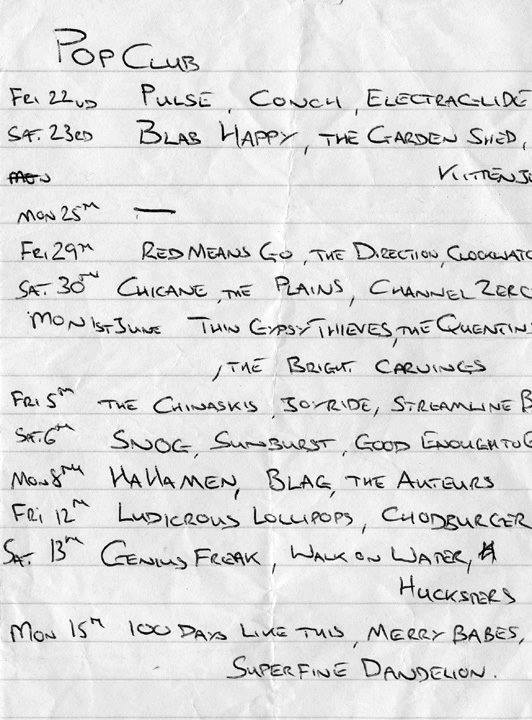 POP CLUB
FRI 22ND PULSE, CONCH, ELECTRAGLIDE
SAT. 23RD BLAB HAPPY, THE GARDEN SHED,
MON KITTEN
MON 25TH —
FRI 29TH RED MEANS GO, THE DIRECTION, CLOCKWATC
SAT. 30TH CHICANE, THE PLAINS, CHANNEL ZERO
MON 1ST JUNE THIN GYPSY THIEVES, THE QUENTIN
, THE BRIGHT CARVINGS
FRI 5TH THE CHINASKIS, JOYRIDE, STREAMLINE B
SAT. 6TH SNOG, SUNBURST, GOOD ENOUGH TO
MON 8TH HAHAMEN, BLAG, THE AUTEURS
FRI 12TH LUDICROUS LOLLIPOPS, CHODBURGER
SAT. 13TH GENIUS FREAK, WALK ON WATER,
HUCKSTERS
MON 15TH 100 DAYS LIKE THIS, MERRY BABES,
SUPERFINE DANDELION.